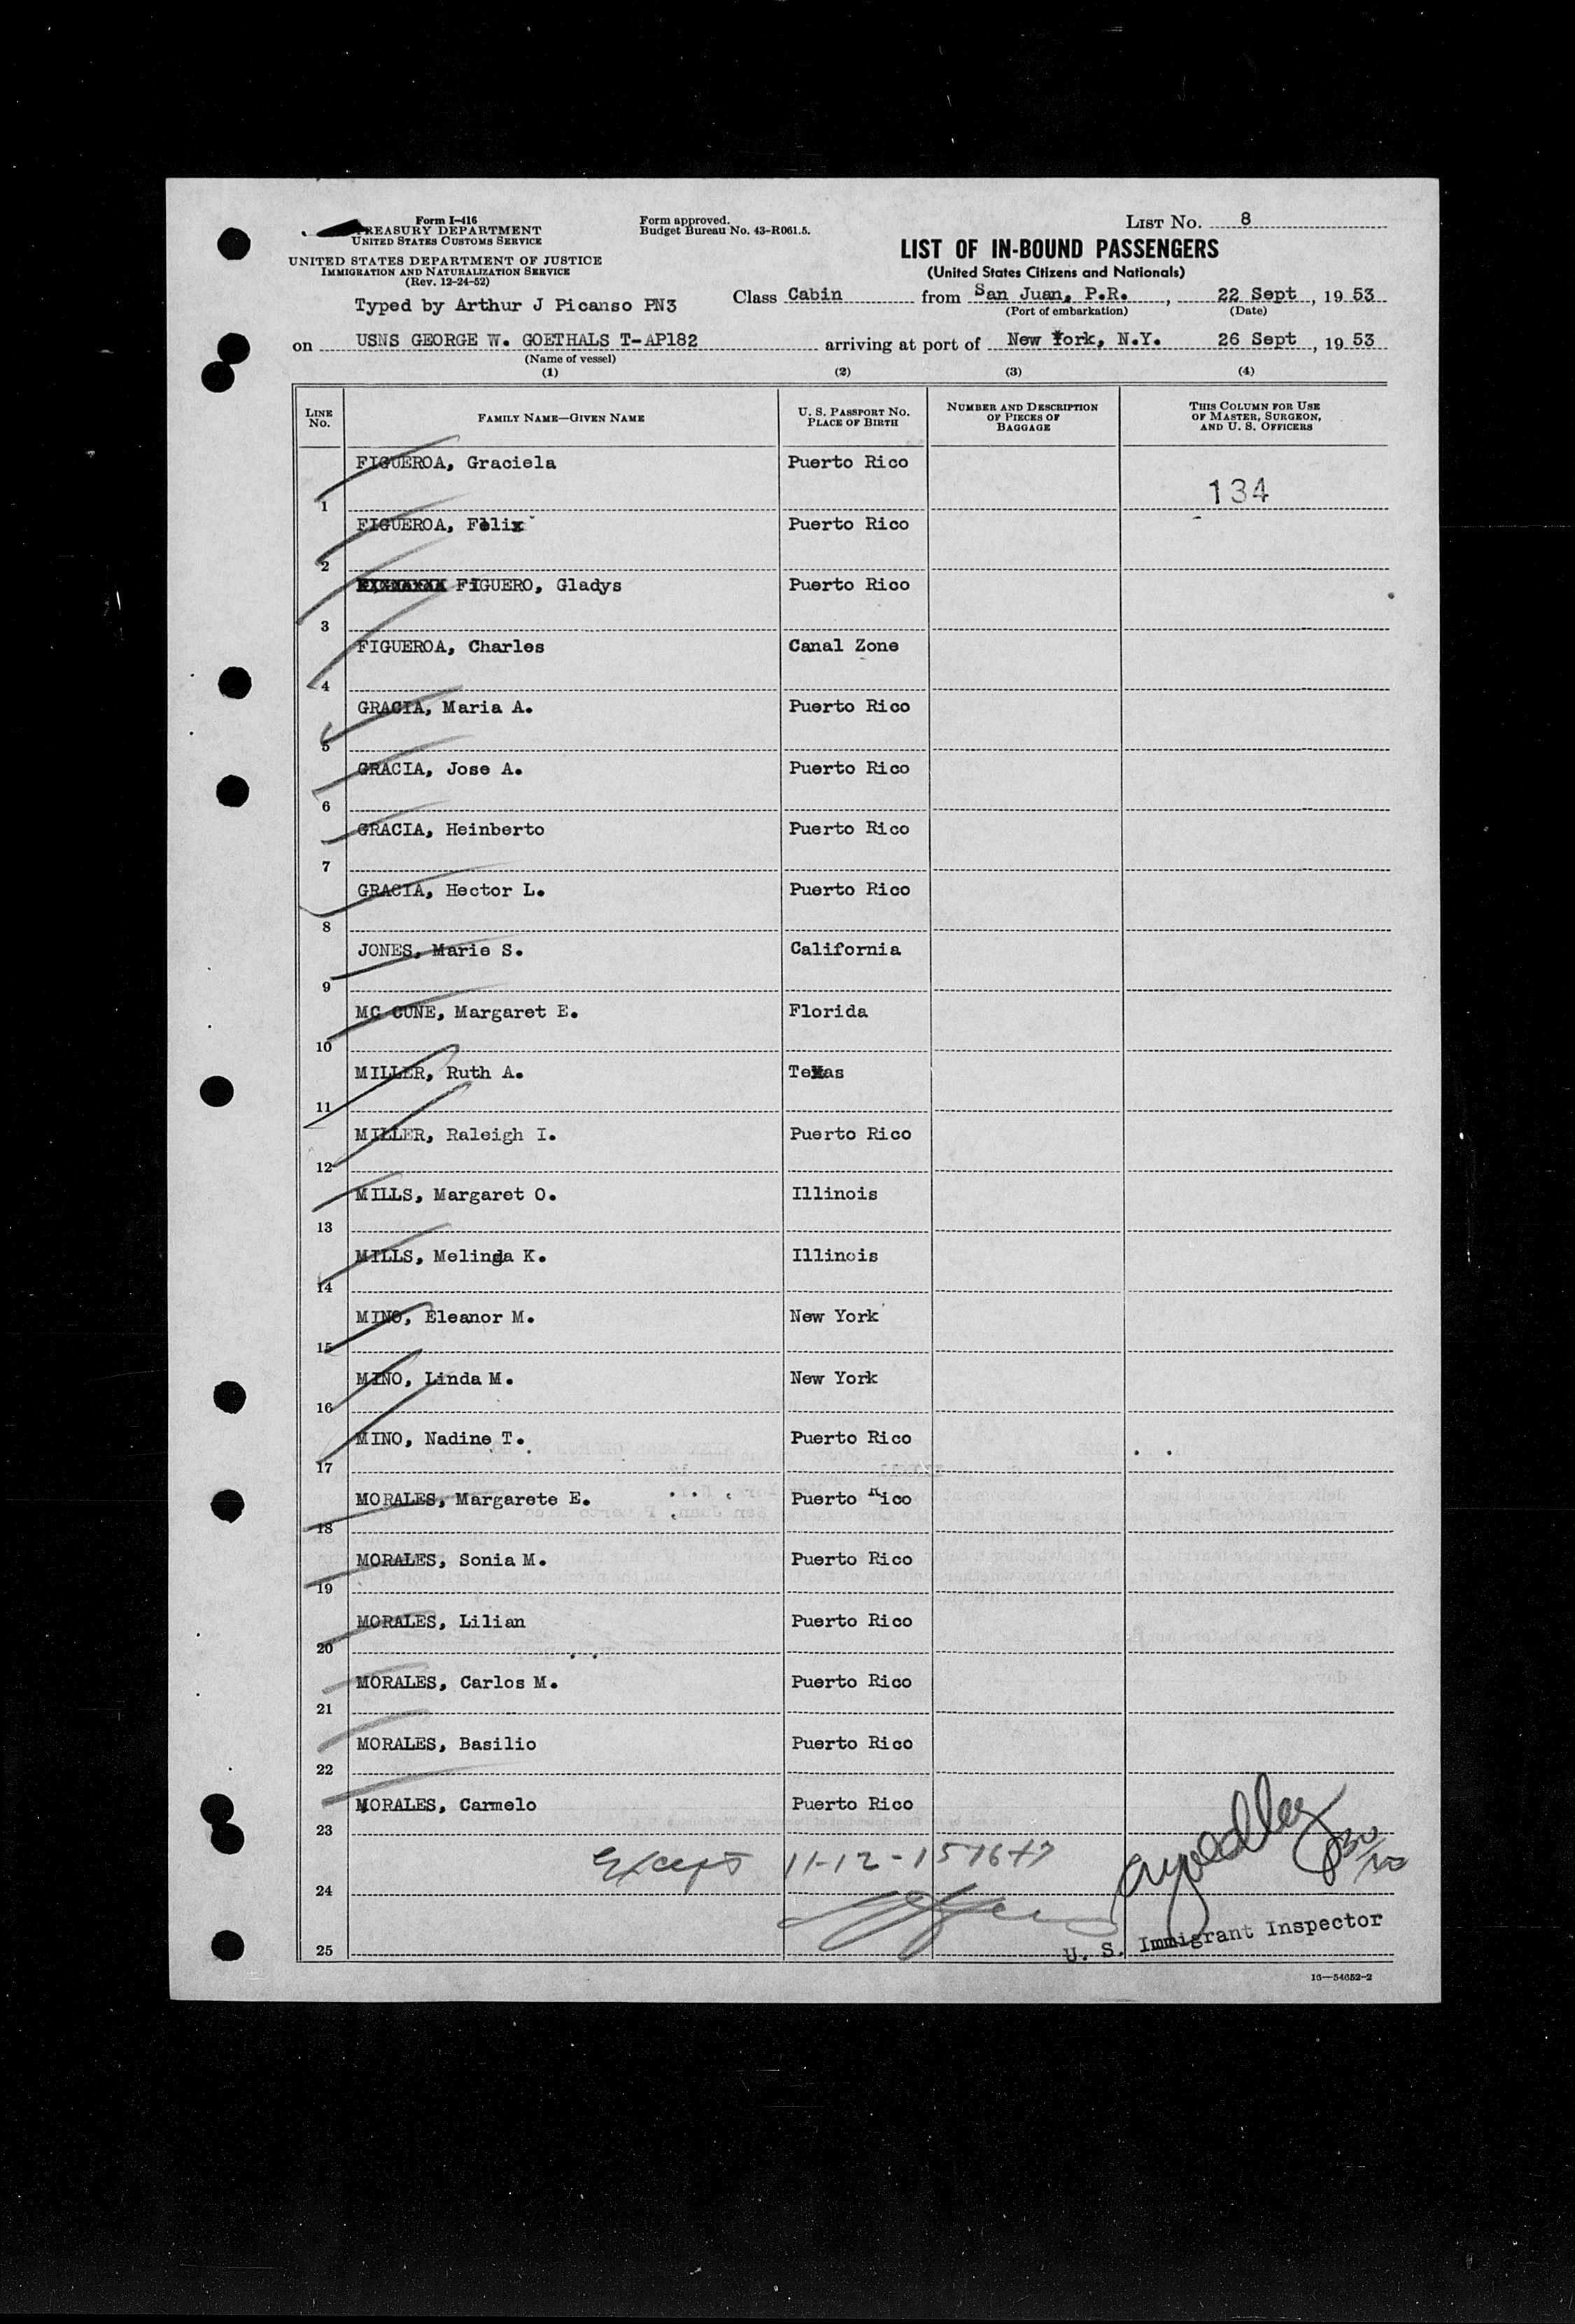 Form I-416
TREASURY DEPARTMENT
UNITED STATES CUSTOMS SERVICE
UNITED STATES DEPARTMENT OF JUSTICE
IMMIGRATION AND NATURALIZATION SERVICE
(Rev. 12-24-52)
Form approved.
Budget Bureau No. 43-R061.5.
LIST No. 8
LIST OF IN-BOUND PASSENGERS
(United States Citizens and Nationals)
Typed by Arthur J Picanso PN3
Class Cabin from San Juan, P.R. , 22 Sept , 19 53
(Port of embarkation) (Date)
on USNS GEORGE W. GOETHALS T-AP182 arriving at port of New York, N.Y. 26 Sept , 19 53
(Name of vessel)
(1) (2) (3) (4)
LINE No. FAMILY NAME—GIVEN NAME U. S. PASSPORT NO. PLACE OF BIRTH NUMBER AND DESCRIPTION OF PIECES OF BAGGAGE THIS COLUMN FOR USE OF MASTER, SURGEON, AND U. S. OFFICERS
1 FIGUEROA, Graciela Puerto Rico 134
2 FIGUEROA, Felix Puerto Rico
3 FIGUERO, Gladys Puerto Rico
4 FIGUEROA, Charles Canal Zone
5 GRACIA, Maria A. Puerto Rico
6 GRACIA, Jose A. Puerto Rico
7 GRACIA, Heinberto Puerto Rico
8 GRACIA, Hector L. Puerto Rico
9 JONES, Marie S. California
10 MC CUNE, Margaret E. Florida
11 MILLER, Ruth A. Texas
12 MILLER, Raleigh I. Puerto Rico
13 MILLS, Margaret O. Illinois
14 MILLS, Melinda K. Illinois
15 MINO, Eleanor M. New York
16 MINO, Linda M. New York
17 MINO, Nadine T. Puerto Rico
18 MORALES, Margarete E. Puerto Rico
19 MORALES, Sonia M. Puerto Rico
20 MORALES, Lilian Puerto Rico
21 MORALES, Carlos M. Puerto Rico
22 MORALES, Basilio Puerto Rico
23 MORALES, Carmelo Puerto Rico
24 Except 11-12-151617
25 U. S. Immigrant Inspector
16—54652-2